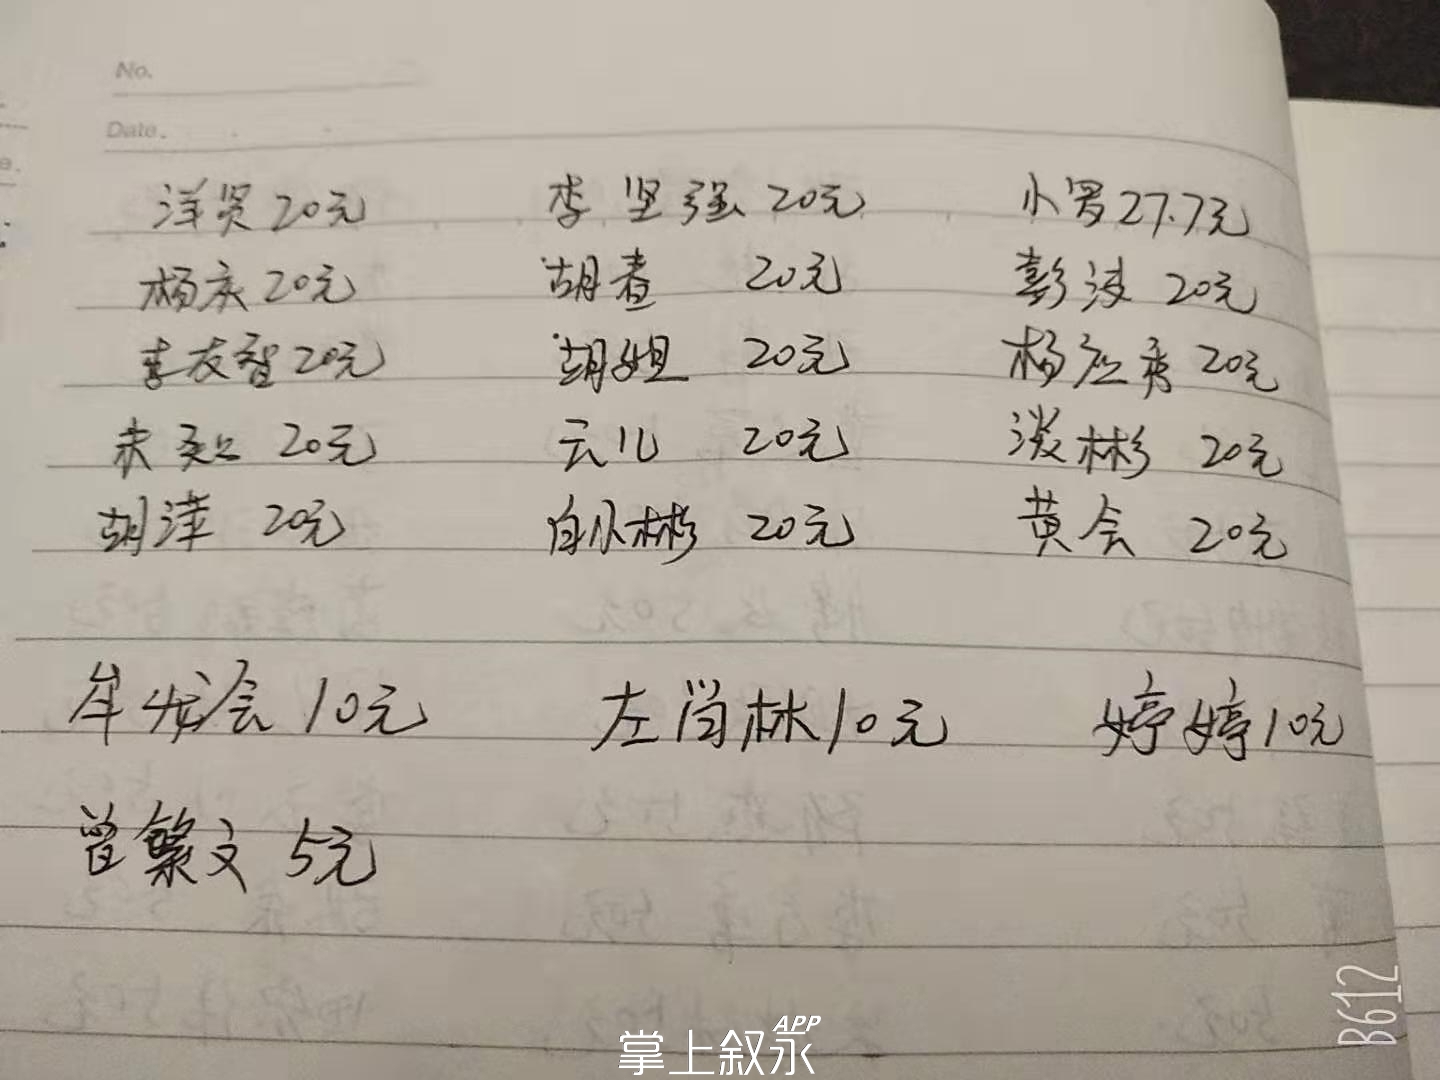 No.
Date.
洋贤 20元 李坚强 20元 小罗 27.7元
杨庆 20元 胡春 20元 彭波 20元
李友智 20元 胡姐 20元 杨应秀 20元
未知 20元 云儿 20元 淡彬 20元
胡萍 20元 白小彬 20元 黄会 20元
牟发会 10元 左尚林 10元 婷婷 10元
曾繁文 5元
掌上叙永APP
B612